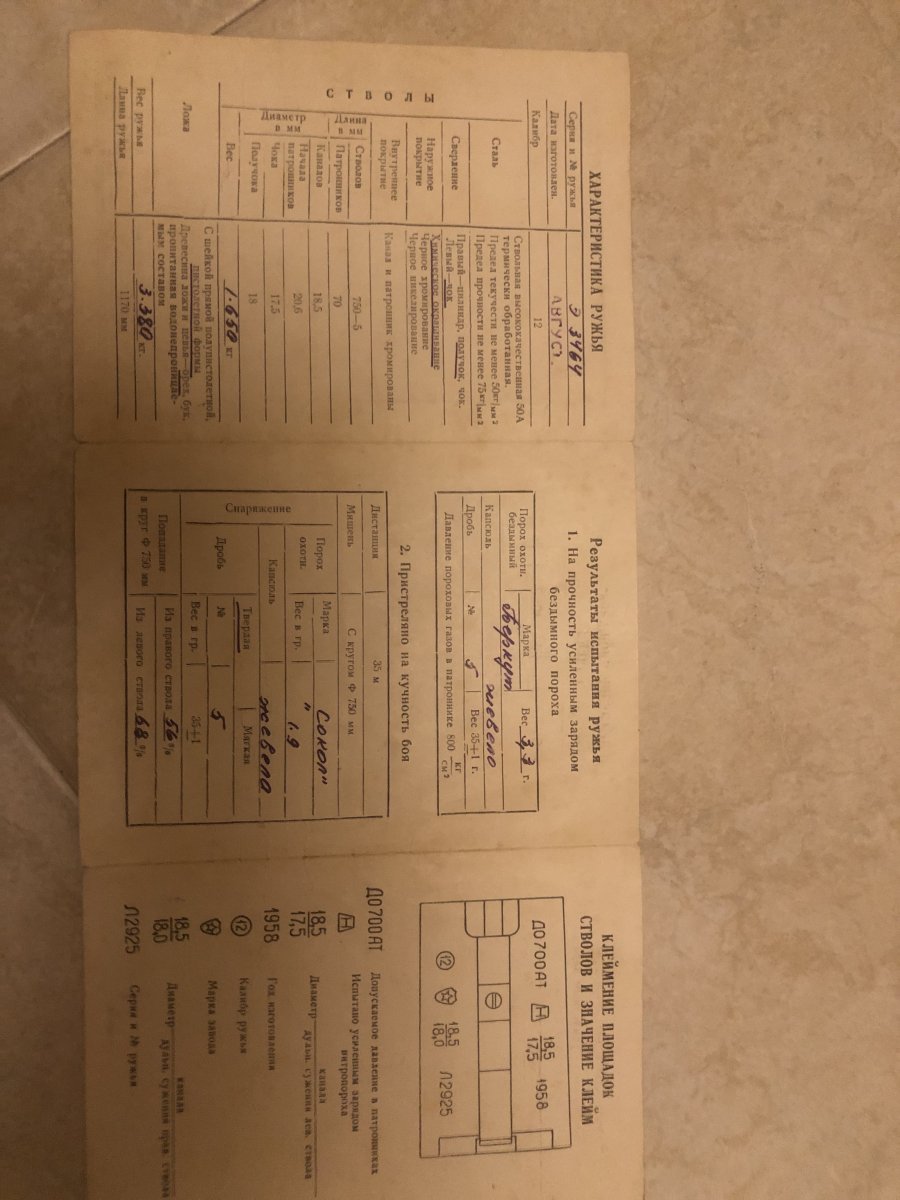 ХАРАКТЕРИСТИКА РУЖЬЯ
Серия и № ружья Э 3464
Дата изготовлен. АВГУСТ.
Калибр 12
СТВОЛЫ
Сталь
Ствольная высококачественная 50А
термически обработанная.
Предел текучести не менее 50кг/мм2
Предел прочности не менее 75кг/мм2
Сверление
Правый—цилиндр, получок, чок.
Левый—чок
Наружное
покрытие
Химическое окрашивание
Черное хромирование
Черное никелирование
Внутреннее
покрытие
Канал и патронник хромированы
Длина
в мм
Стволов 750—5
Патронников 70
Диаметр
в мм
Каналов 18,5
Начала
патронников 20,6
Чока 17,5
Получока 18
Вес 1.650 кг
Ложа
С шейкой прямой полупистолетной,
пистолетной формы
Древесина ложи и цевья—орех, бук,
пропитанная водонепроницае-
мым составом
Вес ружья 3.380 кг.
Длина ружья 1170 мм
Результаты испытания ружья
1. На прочность усиленным зарядом
бездымного пороха
Порох охотн.
бездымный
Марка Вес 3,3 г.
„Беркут
Капсюль жевело
Дробь № 5 Вес 35+1 г.
Давление пороховых газов в патроннике 800 кг/см2
2. Пристреляно на кучность боя
Дистанция 35 м
Мишень С кругом Ф 750 мм
Снаряжение
Порох
охотн.
Марка „Сокол"
Вес в гр. 1.9
Капсюль жевело
Дробь
Твердая Мягкая
№ 5
Вес в гр. 35+1
Попадания
в круг Ф 750 мм
Из правого ствола 56%
Из левого ствола 68%
КЛЕЙМЕНИЕ ПЛОЩАДОК
СТВОЛОВ И ЗНАЧЕНИЕ КЛЕЙМ
Д0700АТ И 18,5 17,5 1958
12 18,5 18,0 Л2925
Д0700АТ Допускаемое давление в патронниках
И Испытано усиленным зарядом
нитропороха
18,5 17,5 Диаметр канала
дульн. сужения лев. ствола
1958 Год изготовления
12 Калибр ружья
Марка завода
18,5 18,0 Диаметр канала
дульн. сужения прав. ствола
Л2925 Серия и № ружья